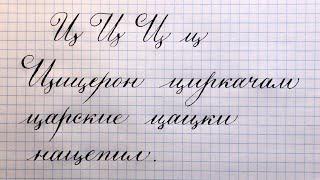 Ц Ц Ц ц
Цицерон циркачам
царские цацки
нацепил.